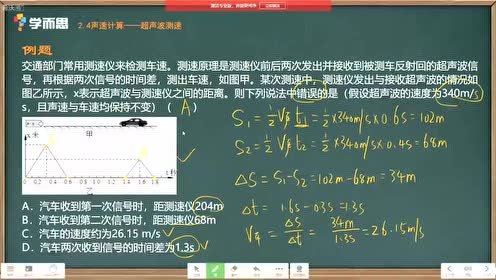 学而思
2.4声速计算——超声波测速
例题
交通部门常用测速仪来检测车速。测速原理是测速仪前后两次发出并接收到被测车反射回的超声波信
号，再根据两次信号的时间差，测出车速，如图甲。某次测速中，测速仪发出与接收超声波的情况如
图乙所示，x表示超声波与测速仪之间的距离。则下列说法中错误的是（假设超声波的速度为340m/
s，且声速与车速均保持不变）（ A ）
甲
x/米
0 0.2 0.4 0.6 0.8 1.0 1.2 1.4 1.6 1.8 t/秒
乙
A．汽车收到第一次信号时，距测速仪204m
B．汽车收到第二次信号时，距测速仪68m
C．汽车的速度约为26.15 m/s
D．汽车两次收到信号的时间差为1.3s
S₁=½V声t₁=½×340m/s×0.6s=102m
S₂=½V声t₂=½×340m/s×0.4s=68m
ΔS=S₁-S₂=102m-68m=34m
Δt=1.6s-0.3s=1.3s
V车=ΔS/Δt=34m/1.3s=26.15m/s